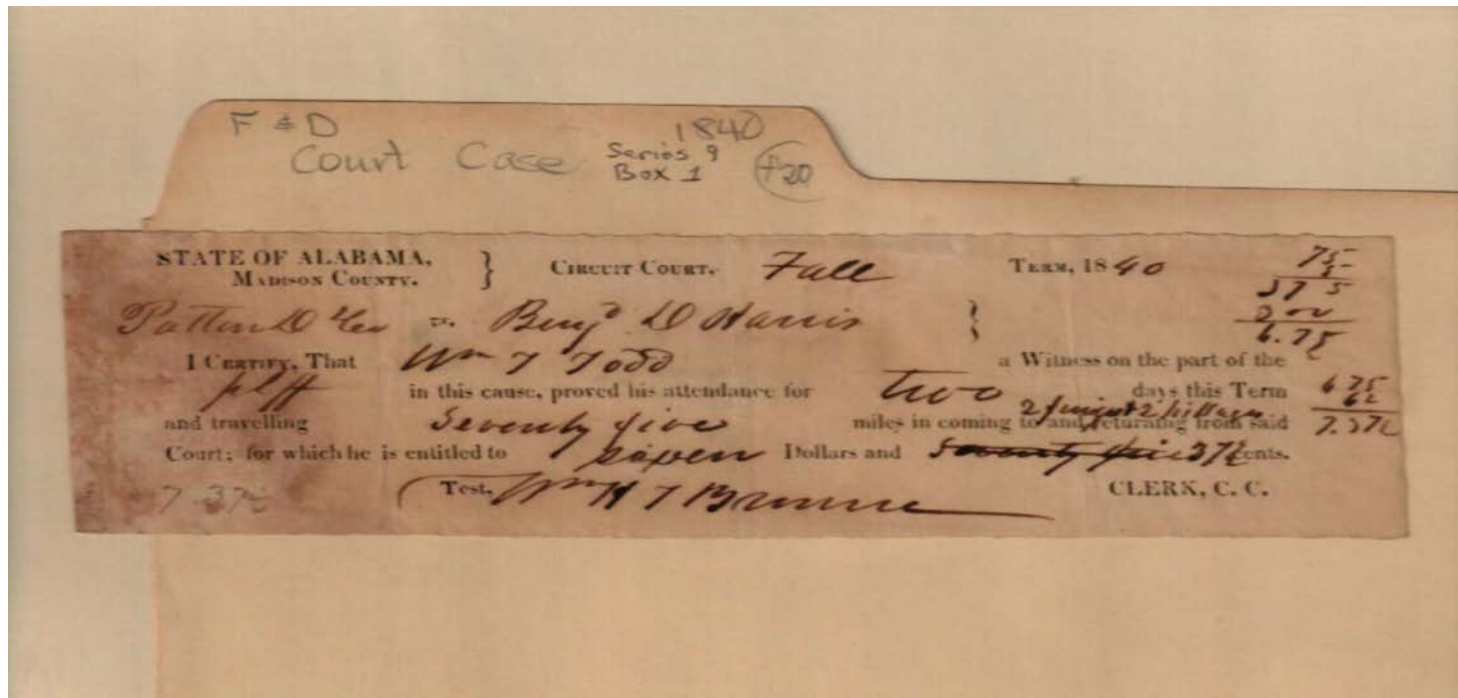 F & D 1840
Court Case Series 9
Box 1 f20
STATE OF ALABAMA, } CIRCUIT COURT. Fall TERM, 1840
MADISON COUNTY.
Patton D & Co vs. Benj D Harris }
I CERTIFY, That Wm T Todd a Witness on the part of the
plff in this cause, proved his attendance for two days this Term
and travelling Seventy five miles in coming to and returning from said
2 2
Court; for which he is entitled to Dollars and Seventy five 37½ Cents.
Test. Wm H T CLERK, C. C.
7.37½
75
5
375
300
6.75
6 75
62
7.37½